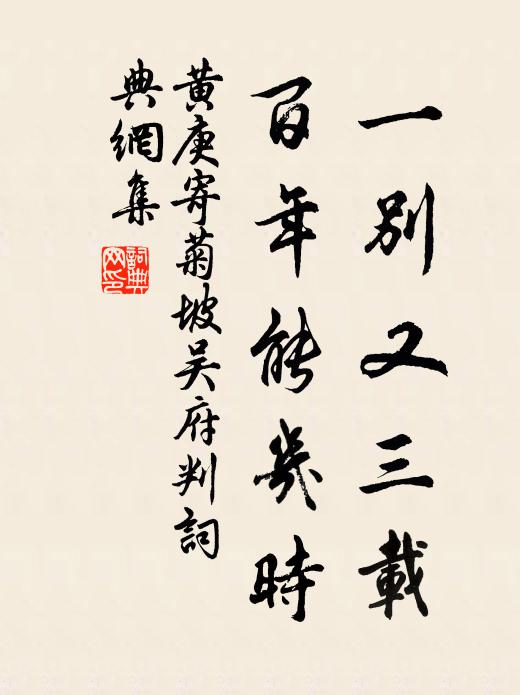 一別又三載
百年能幾時
黃庚寄菊坡吴府判詞
典網集
詞典
网印